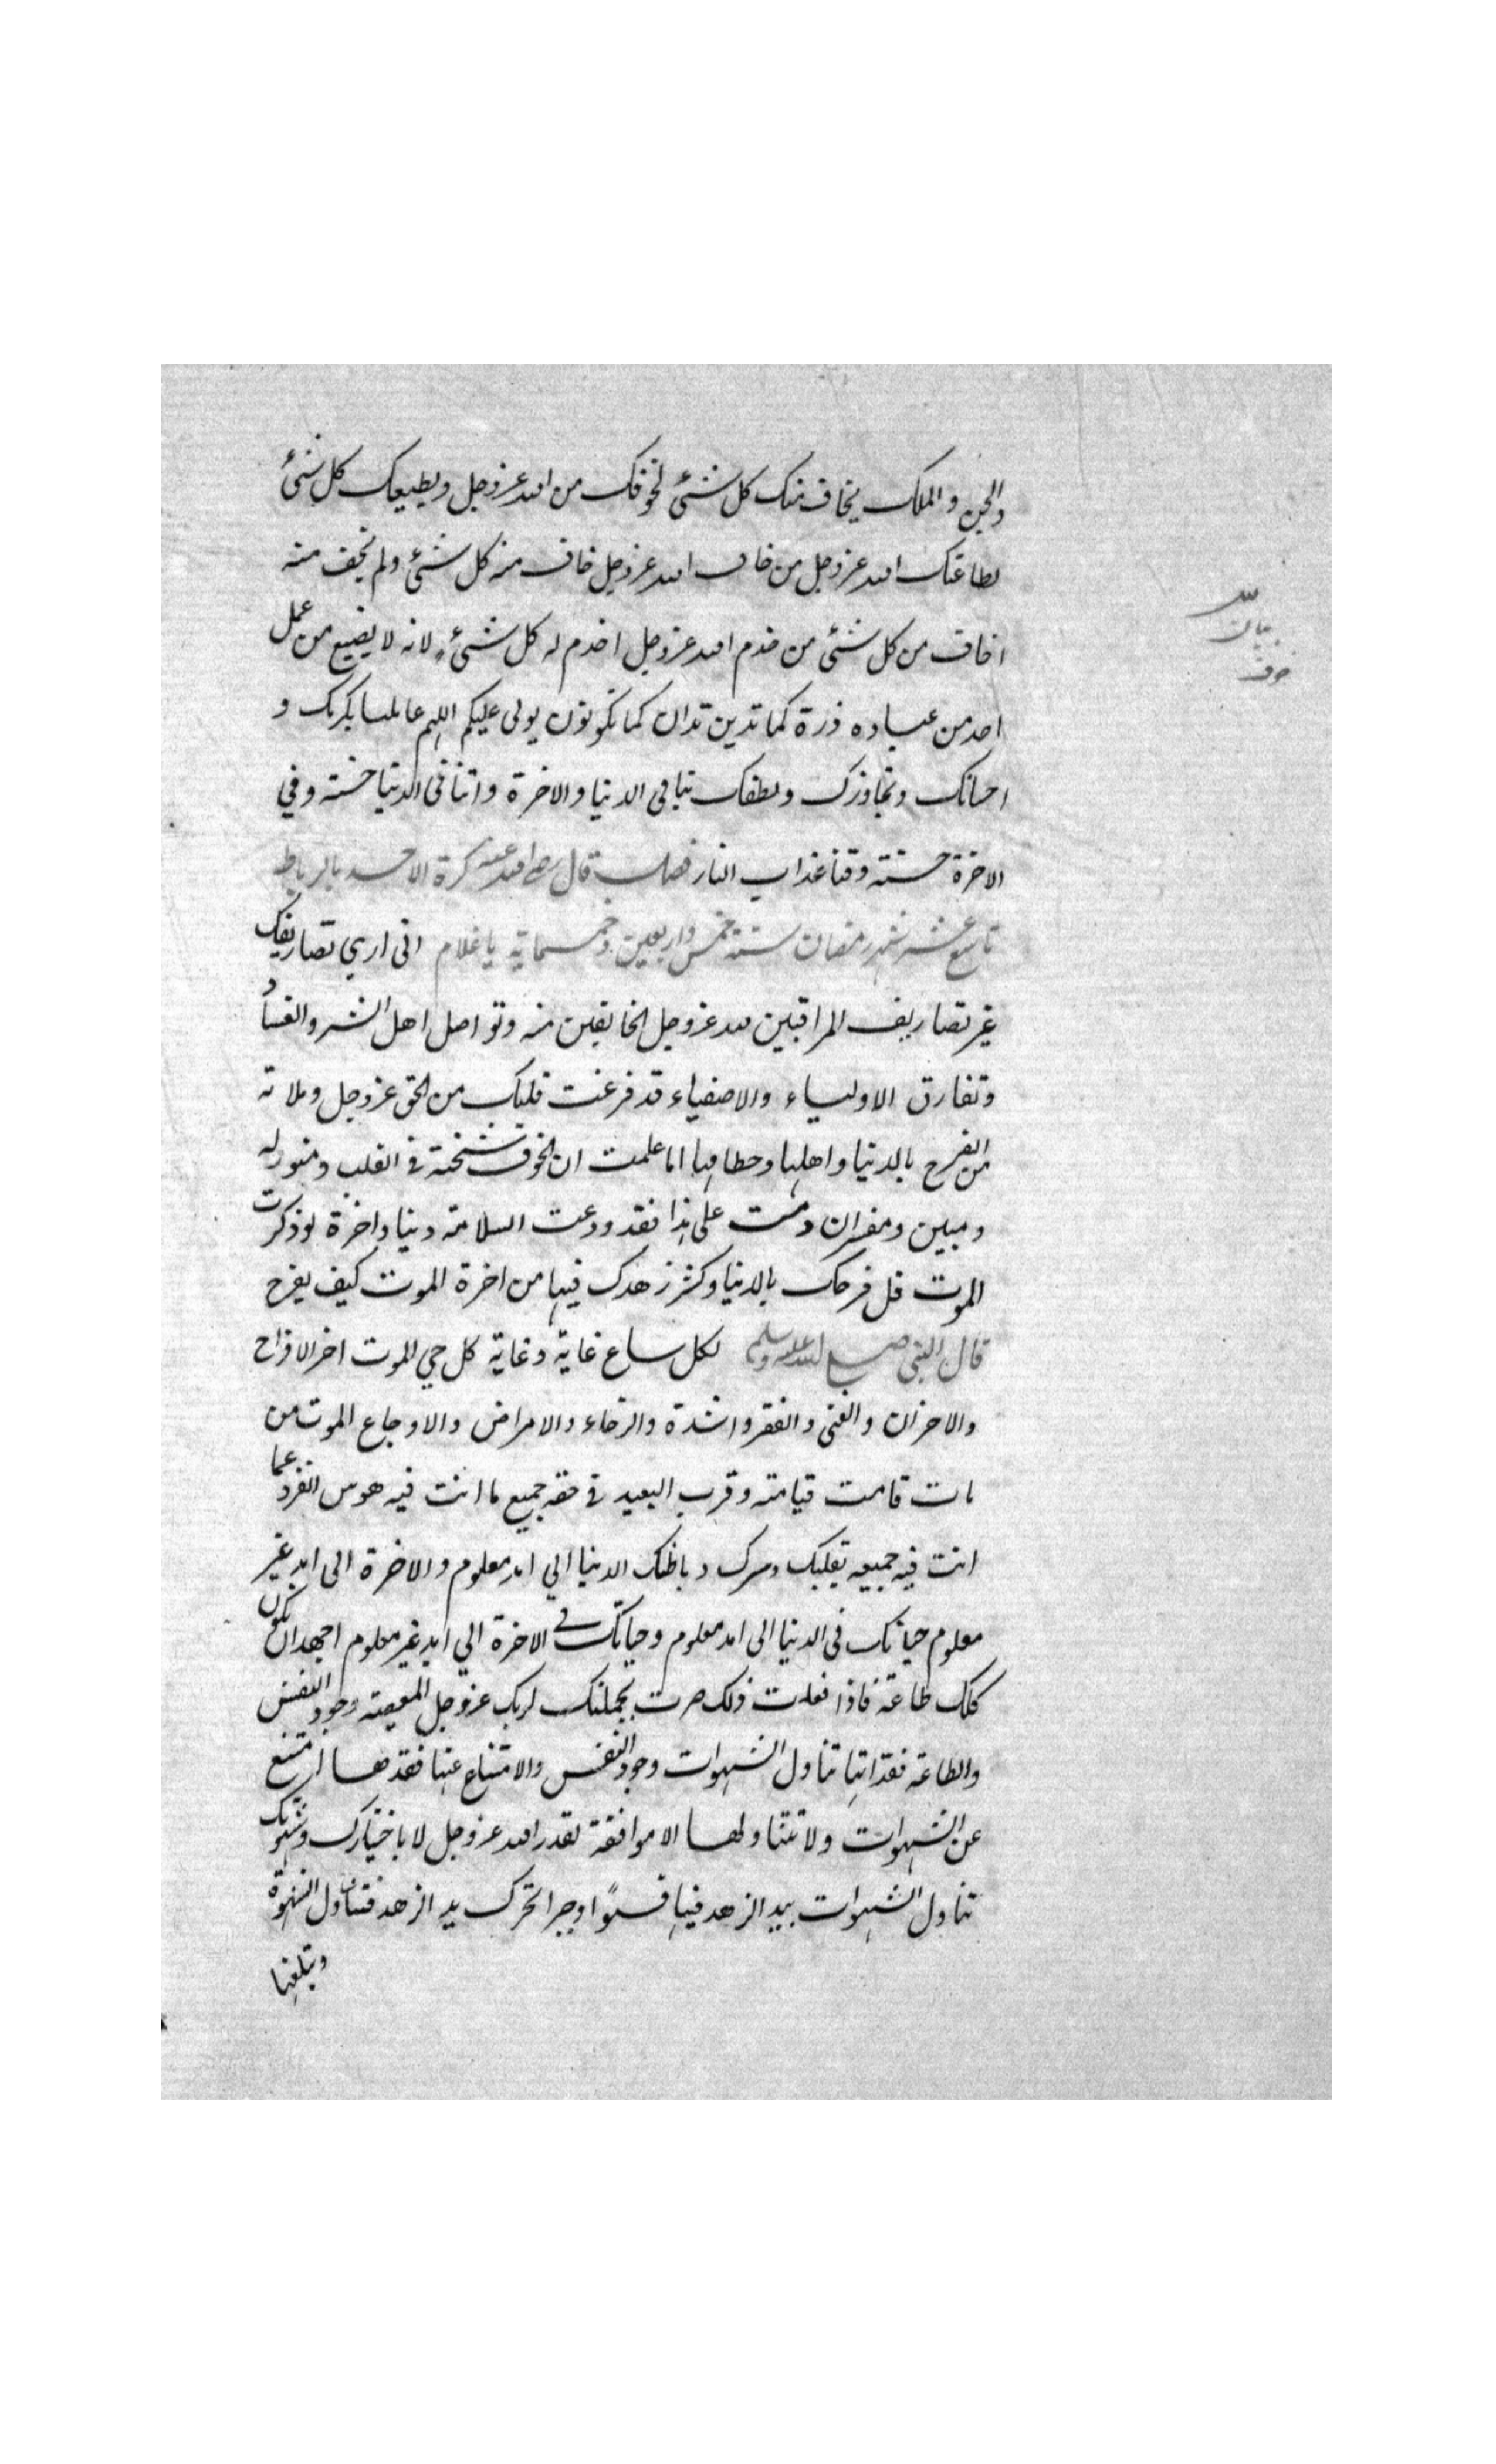 والجن والملك يخاف منك كل شئ لخوفك من الله عز وجل ويطيعك كل شئ
لطاعتك الله عز وجل من خاف الله عز وجل خاف منه كل شئ ولم يخف منه
اخاف من كل شئ من خدم الله عز وجل اخدم له كل شئ لانه لا يضيع من عمل
احد من عباده ذرة كما تدين تدان كما تكونون يولى عليكم اللهم عاملنا بكرمك و
احسانك وتجاوزك ولطفك بنا فى الدنيا والاخرة واتنا فى الدنيا حسنة وفي
الاخرة حسنة وقنا عذاب النار فصل قال رضي الله عنه بكرة الاحد بالرباط
تاسع عشر شهر رمضان سنة خمس واربعين وخمسماية يا غلام انى اري تصاريفك
غير تصاريف المراقبين لله عز وجل الخايفين منه وتواصل اهل الشر والفساد
وتفارق الاولياء والاصفياء قد فرغت قلبك من الحق عز وجل وملاته
من الفرح بالدنيا واهلها وحطامها اما علمت ان الخوف شحنة فى القلب ومنور له
ومبين ومفسران دمت على هذا فقد ودعت السلامة دنيا واخرة لو ذكرت
الموت قل فرحك بالدنيا وكثر زهدك فيها من اخرة الموت كيف يفرح
قال النبى صلى الله عليه وسلم لكل ساع غاية وغاية كل حي الموت اخر الافراح
والاحزان والغنى والفقر والشدة والرخاء والامراض والاوجاع الموت من
مات قامت قيامته وقرب البعيد فى حقه جميع ما انت فيه هوس انفرد عما
انت فيه جميعه بقلبك وسرك وباطنك الدنيا الي امد معلوم والاخرة الى ابد غير
معلوم حياتك فى الدنيا الى امد معلوم وحياتك فى الاخرة الي ابد غير معلوم اجهد ان تكون
كلك طاعة فاذا فعلت ذلك صرت بجملتك لربك عز وجل المعصية وجود النفس
والطاعة فقدانها تناول الشهوات وجود النفس والامتناع عنها فقدها امتنع
عن الشهوات ولا تتناولها الا موافقة لقدر الله عز وجل لا باختيارك وشهوتك
تناول الشهوات بيد الزهد فيها قسرًا وجبرا تحرك يد الزهد فتناول الشهوة
وتبلغها
بيان
خوف